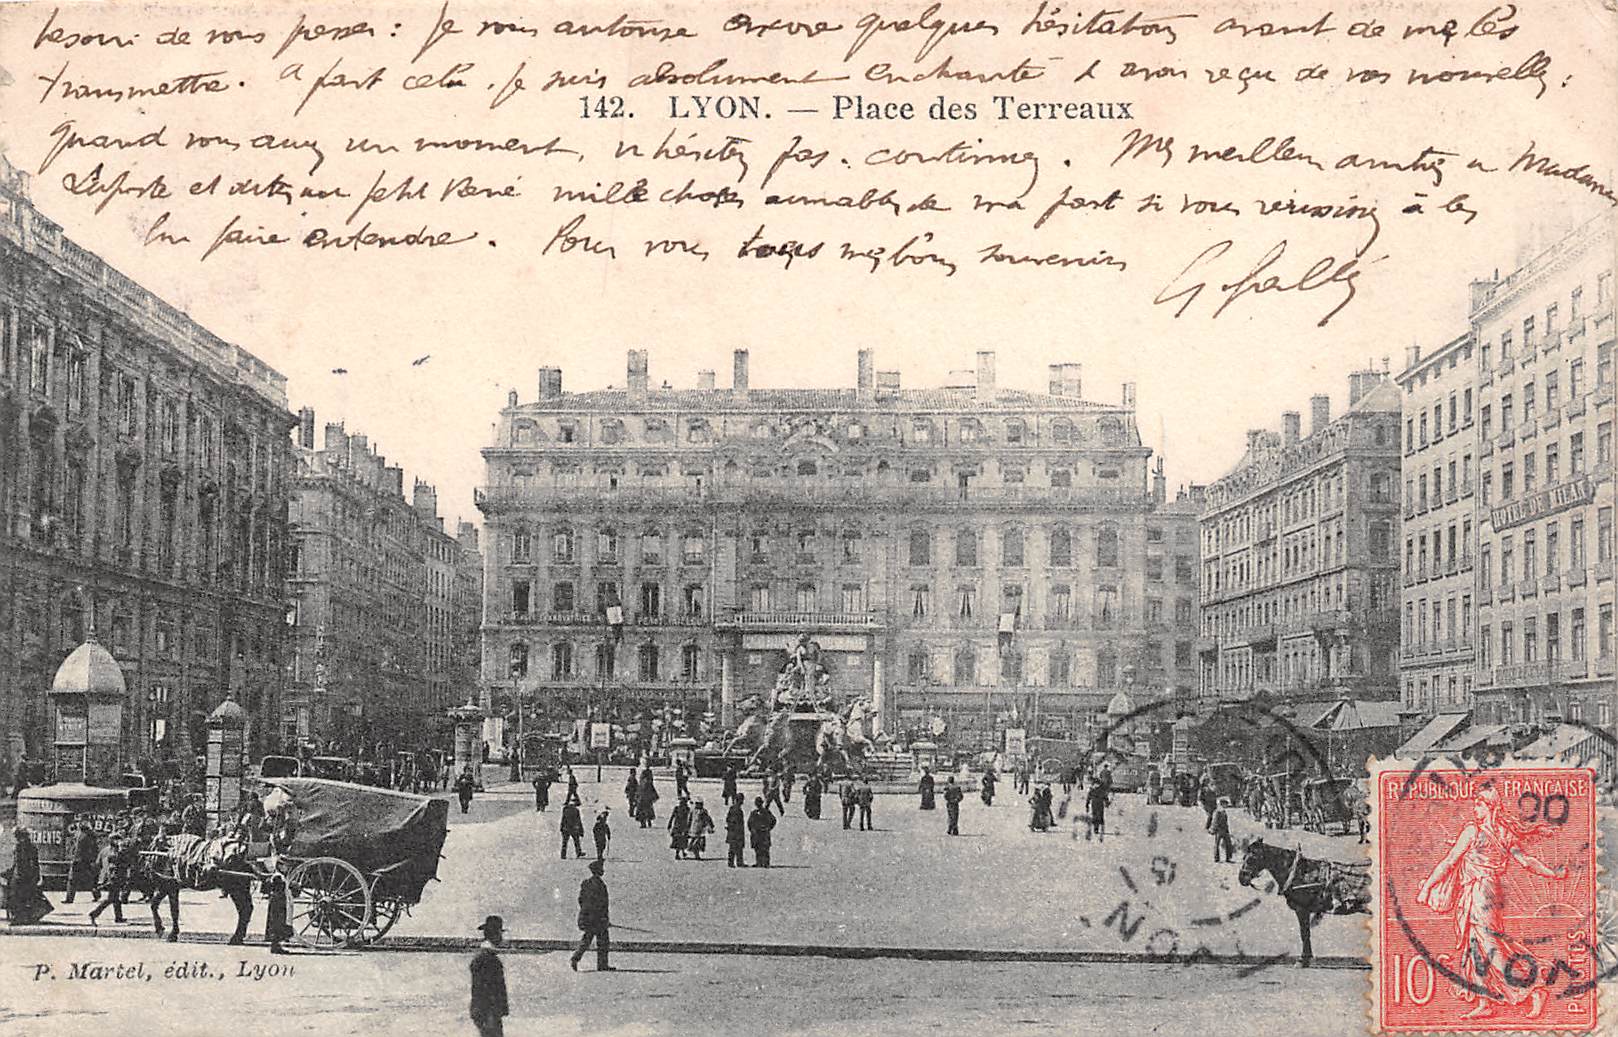 besoin de vous presser : je vous autorise encore quelques hésitations avant de me les
transmettre. A part cela, je suis absolument enchanté d'avoir reçu de vos nouvelles ;
142. LYON. — Place des Terreaux
quand vous aurez un moment, n'hésitez pas. continuez. Mes meilleures amitiés à Madame
Laporte et dites au petit René mille choses aimables de ma part si vous réussissez à les
lui faire entendre. Pour vous tous mes bons souvenirs
G
HOTEL DE MILAN
REPUBLIQUE FRANÇAISE
10c
POSTES
LYON
LYON
P. Martel, édit., Lyon